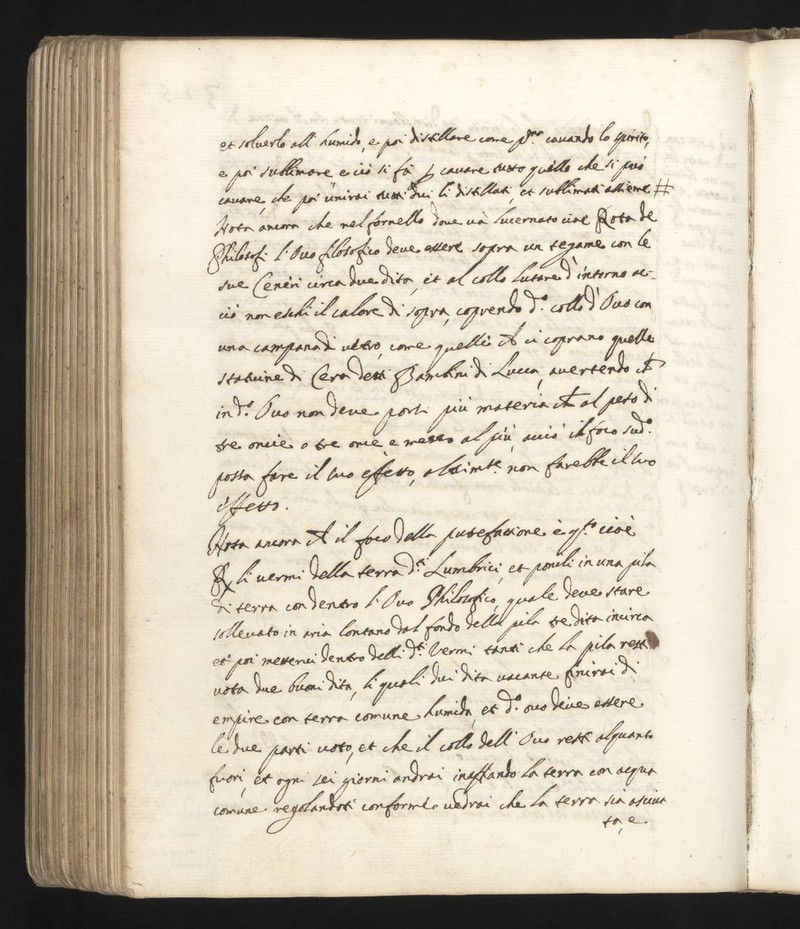 et solverlo all humido, e poi distillare come pma cavando lo spirito,
e poi sublimare e ciò si fà p cavare tutto quello che si può
cavare, che poi unirai tutti dui li distillati, et sublimati assieme #
Nota ancora che nel fornello dove và lucernato cioe Rota de
Philosofi l'Ovo filosofico deve essere sopra un tegame con le
sue Ceneri circa due dita, et al collo lutare d'intorno ac-
ciò non eschi il calore di sopra, coprendo do collo d'Ovo con
una campana di vetro, come quelle ch ci coprano quelle
statuine di Cera detti Bambini di Lucca, avertendo ch
in do Ovo non deve porti più materia ch al peso di
tre oncie o tre oncie e mezzo al più, acciò il foco sudo
possa fare il suo effetto, altrimte non farebbe il suo
effetto.
Nota ancora ch il foco della putefatione è qto cioè
Rx li vermi della terra dti Lumbrici, et poneli in una pila
di terra con dentro l'Ovo Philosofico, quale deve stare
sollevato in aria lontano dal fondo della pila tre dita incirca
et poi mettervi dentro delli dti Vermi tanti che la pila resti
vota due buoni dita, li quali dui dita vacante finirai di
empire con terra comune humida, et do ovo deve essere
le due parti voto, et che il collo dell'Ovo resti alquanto
fuori, et ogni sei giorni andrai inaffando la terra con acqua
comune regolandoti conforme vedrai che la terra sia asciut
ta, e